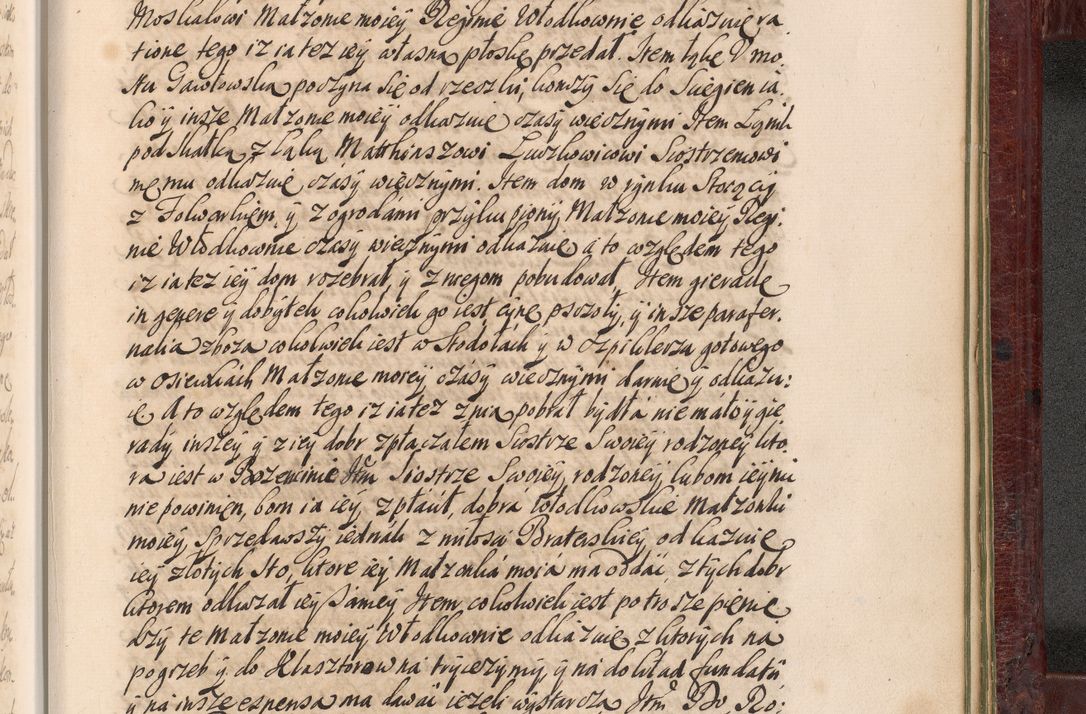 Moskalowi Małzonie moiey Reginie Włodkownie odkazuię ra
tione tego iz ia tez iey własną płoskę przedał. Item łąkę
Gawłowską poczyna się od rzeczki, konczy się do Sciegien
ko y insze Małzonie moiey odkazuię czasy wiecznymi Item
pod skałką z łąką Matthiaszowi Ludzkowicowi Siostrzencowi
memu odkazuię czasy wiecznymi. Item dom w rynku stoiący
z Folwarkiem, y z ogrodami przykupiony, Małzonie moiey Regi:
nie Włodkownie czasy wiecznymi odkazuię a to względem tego
iz ia tez iey dom rozebrał, y z niegom pobudował, Item gierade
in genere y dobytek cokolwiek go iest cyne pszczoły, y insze parafer:
nalia zboza cokolwiek iest w stodołach y w szpiklerzu gotowego
w osiewkach Małzonie moiey czasy wiecznymi daruię y odkazu:
ię A to względem tego iz ia tez z nią pobrał bydła nie mało y gie
rady inszey y z iey dobr zpłaczałem Siostrze Swoiey rodzoney kto
ra iest w Itm Siostrze Swoiey rodzoney, lubom iey nic
nie powinien, bom ia iey zpłacił, dobra włodkowskie Małzonki
moiey sprzedawszy iednak z miłosci Braterskiey odkazuię
iey złotych sto, ktore iey Małzonka moia ma oddać, z tych dobr
ktorem odkazał iey samey Item cokolwiek iest po troszę pienię
dzy te Małzonie moiey Włodkownie odkazuię z ktorych na
pogrzeb y do Klasztorow na trycezymy, y na dokład fundaty
y na insze expensa ma dawać iezeli wystarczą Itm Po Ro: